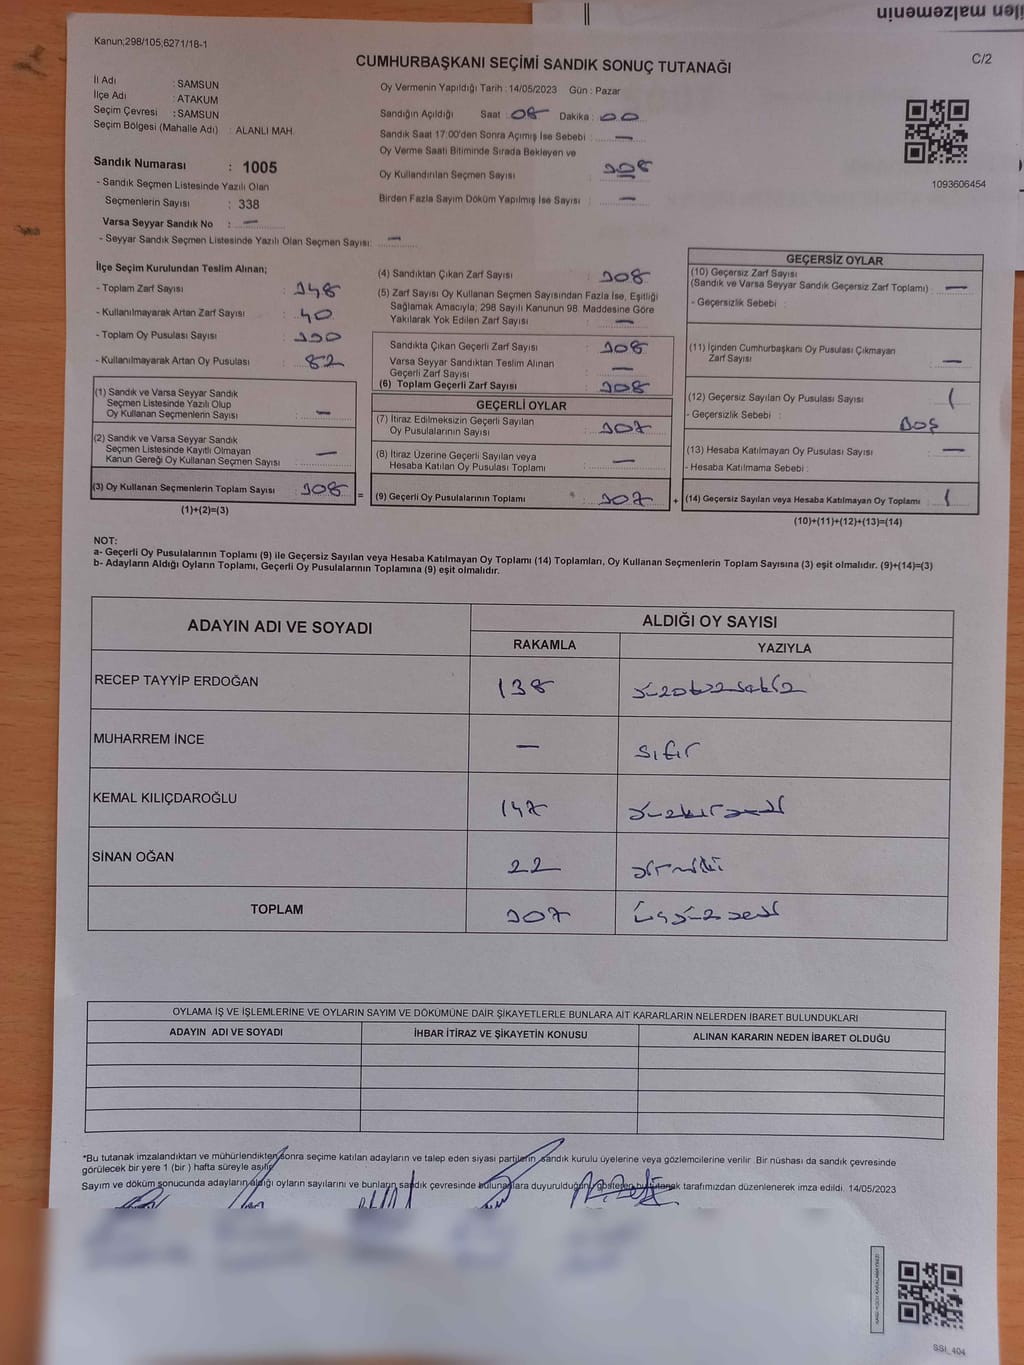 ilen malzemenin
Kanun;298/105;6271/18-1
CUMHURBAŞKANI SEÇİMİ SANDIK SONUÇ TUTANAĞI
C/2
İl Adı : SAMSUN
İlçe Adı : ATAKUM
Seçim Çevresi : SAMSUN
Seçim Bölgesi (Mahalle Adı) : ALANLI MAH.
Sandık Numarası : 1005
- Sandık Seçmen Listesinde Yazılı Olan
Seçmenlerin Sayısı : 338
Varsa Seyyar Sandık No : —
- Seyyar Sandık Seçmen Listesinde Yazılı Olan Seçmen Sayısı: —
Oy Vermenin Yapıldığı Tarih : 14/05/2023 Gün : Pazar
Sandığın Açıldığı Saat : 08 Dakika : 00
Sandık Saat 17:00'den Sonra Açılmış İse Sebebi : —
Oy Verme Saati Bitiminde Sırada Bekleyen ve
Oy Kullandırılan Seçmen Sayısı : 308
Birden Fazla Sayım Döküm Yapılmış İse Sayısı : —
1093606454
İlçe Seçim Kurulundan Teslim Alınan;
- Toplam Zarf Sayısı : 348
- Kullanılmayarak Artan Zarf Sayısı : 40
- Toplam Oy Pusulası Sayısı :
- Kullanılmayarak Artan Oy Pusulası : 82
(1) Sandık ve Varsa Seyyar Sandık
Seçmen Listesinde Yazılı Olup
Oy Kullanan Seçmenlerin Sayısı : —
(2) Sandık ve Varsa Seyyar Sandık
Seçmen Listesinde Kayıtlı Olmayan
Kanun Gereği Oy Kullanan Seçmen Sayısı : —
(3) Oy Kullanan Seçmenlerin Toplam Sayısı : 308
(1)+(2)=(3)
=
(4) Sandıktan Çıkan Zarf Sayısı : 308
(5) Zarf Sayısı Oy Kullanan Seçmen Sayısından Fazla İse, Eşitliği
Sağlamak Amacıyla; 298 Sayılı Kanunun 98. Maddesine Göre
Yakılarak Yok Edilen Zarf Sayısı : —
Sandıkta Çıkan Geçerli Zarf Sayısı : 308
Varsa Seyyar Sandıktan Teslim Alınan
Geçerli Zarf Sayısı : —
(6) Toplam Geçerli Zarf Sayısı : 308
GEÇERLİ OYLAR
(7) İtiraz Edilmeksizin Geçerli Sayılan
Oy Pusulalarının Sayısı : 307
(8) İtiraz Üzerine Geçerli Sayılan veya
Hesaba Katılan Oy Pusulası Toplamı : —
(9) Geçerli Oy Pusulalarının Toplamı : 307
+
GEÇERSİZ OYLAR
(10) Geçersiz Zarf Sayısı
(Sandık ve Varsa Seyyar Sandık Geçersiz Zarf Toplamı) : —
- Geçersizlik Sebebi :
(11) İçinden Cumhurbaşkanı Oy Pusulası Çıkmayan
Zarf Sayısı : —
(12) Geçersiz Sayılan Oy Pusulası Sayısı : 1
- Geçersizlik Sebebi : BOŞ
(13) Hesaba Katılmayan Oy Pusulası Sayısı : —
- Hesaba Katılmama Sebebi :
(14) Geçersiz Sayılan veya Hesaba Katılmayan Oy Toplamı : 1
(10)+(11)+(12)+(13)=(14)
NOT:
a- Geçerli Oy Pusulalarının Toplamı (9) ile Geçersiz Sayılan veya Hesaba Katılmayan Oy Toplamı (14) Toplamları, Oy Kullanan Seçmenlerin Toplam Sayısına (3) eşit olmalıdır. (9)+(14)=(3)
b- Adayların Aldığı Oyların Toplamı, Geçerli Oy Pusulalarının Toplamına (9) eşit olmalıdır.
ADAYIN ADI VE SOYADI
ALDIĞI OY SAYISI
RAKAMLA YAZIYLA
RECEP TAYYİP ERDOĞAN 138 yüzotuzsekiz
MUHARREM İNCE — sıfır
KEMAL KILIÇDAROĞLU 147 yüzkırkyedi
SİNAN OĞAN 22 yirmiiki
TOPLAM 307 üçyüzyedi
OYLAMA İŞ VE İŞLEMLERİNE VE OYLARIN SAYIM VE DÖKÜMÜNE DAİR ŞİKAYETLERLE BUNLARA AİT KARARLARIN NELERDEN İBARET BULUNDUKLARI
ADAYIN ADI VE SOYADI İHBAR İTİRAZ VE ŞİKAYETİN KONUSU ALINAN KARARIN NEDEN İBARET OLDUĞU
*Bu tutanak imzalandıktan ve mühürlendikten sonra seçime katılan adayların ve talep eden siyasi partilerin sandık kurulu üyelerine veya gözlemcilerine verilir. Bir nüshası da sandık çevresinde
görülecek bir yere 1 (bir ) hafta süreyle asılır.
Sayım ve döküm sonucunda adayların aldığı oyların sayılarını ve bunların sandık çevresinde bulunanlara duyurulduğunu gösteren bu tutanak tarafımızdan düzenlenerek imza edildi. 14/05/2023
SSI_404